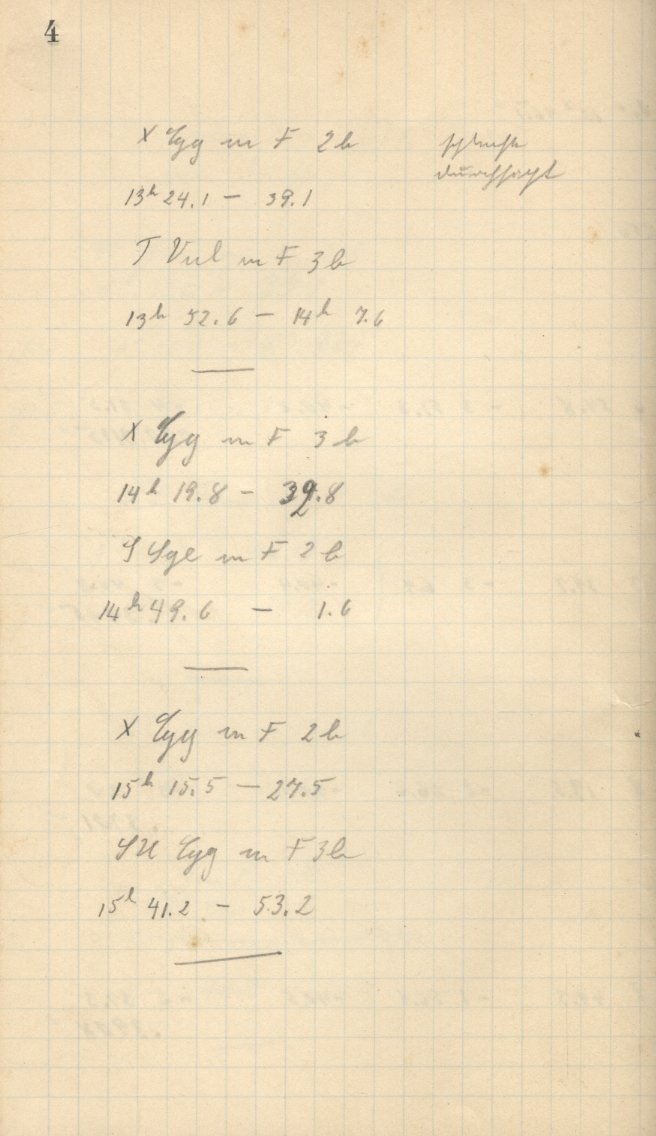 4
X Cyg m F 2b
schlechte
durchsicht
13h 24.1 – 39.1
T Vul m F 3b
13h 52.6 – 14h 7.6
X Cyg m F 3b
14h 19.8 – 39.8
S Sge m F 2b
14h 49.6 – 1.6
X Cyg m F 2b
15h 15.5 – 27.5
SU Cyg m F 3b
15h 41.2 – 53.2